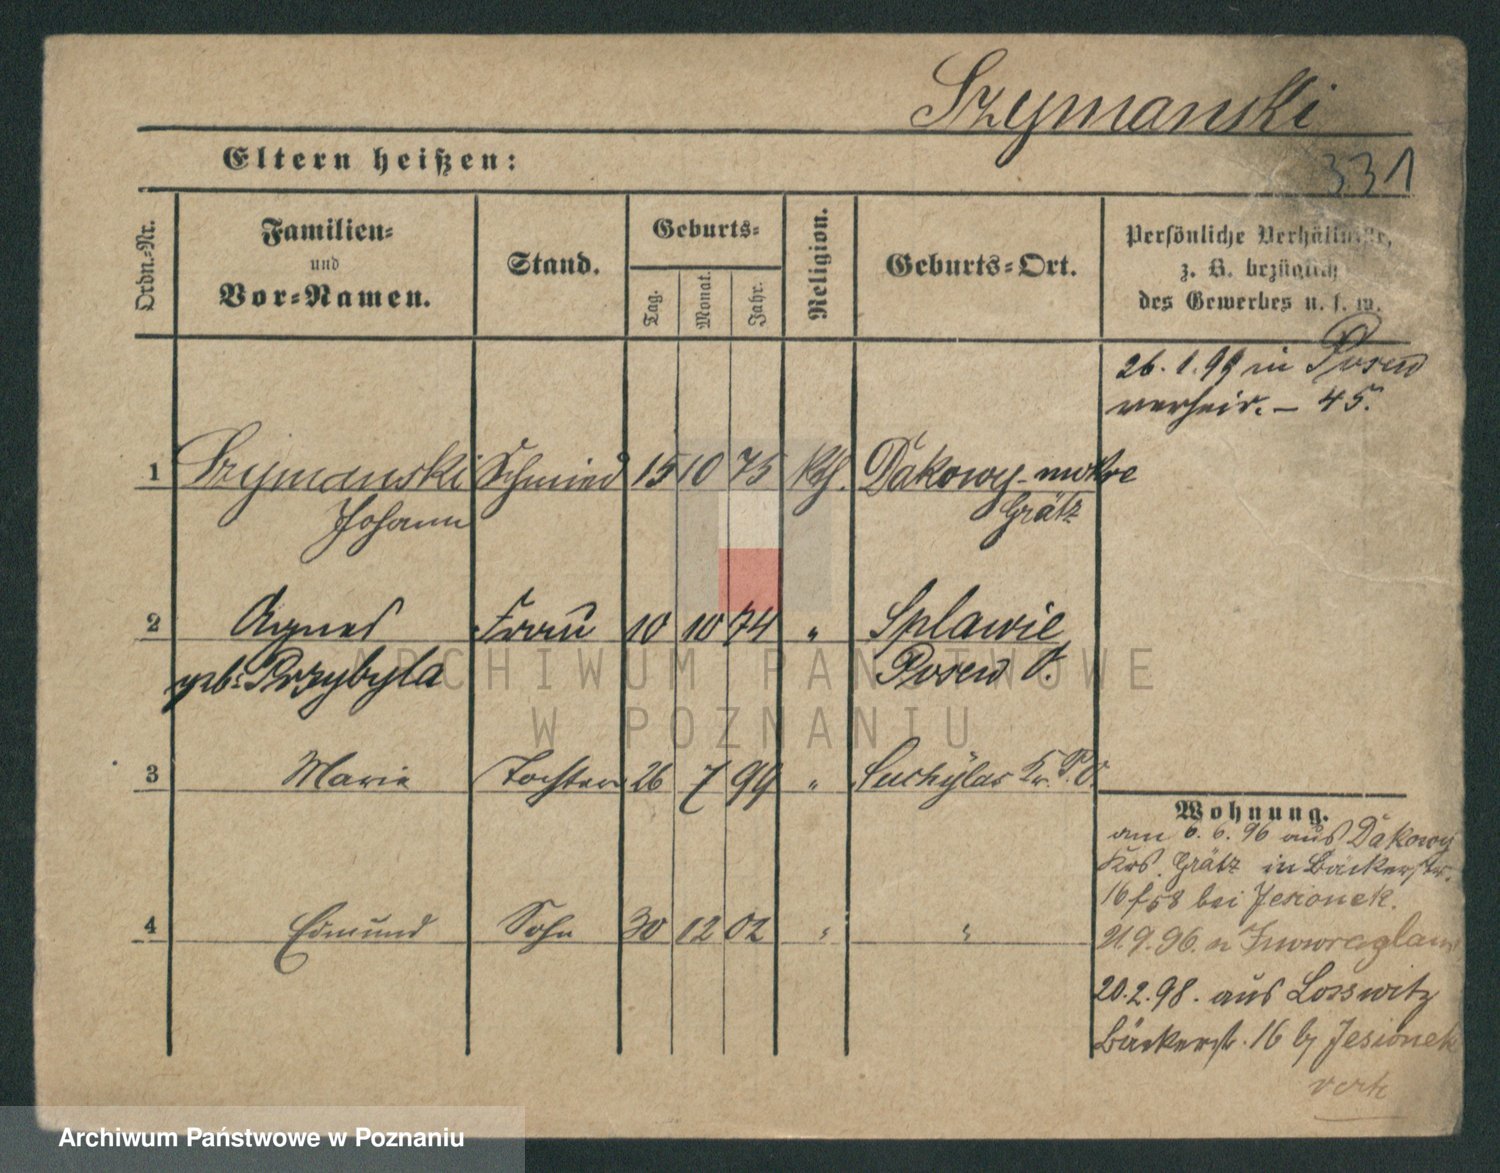 Szymanski
Eltern heißen:
331
Ordn.-Nr.
Familien-
und
Vor-Namen.
Stand.
Geburts-
Tag.
Monat.
Jahr.
Religion.
Geburts-Ort.
Persönliche Verhältnisse,
z. B. bezüglich
des Gewerbes u. s. w.
26. 1. 99 in Posen
verheir. – 45.
1 Szymanski Schmied 15 10 75 kth. Dakowy-mokre
Johann Grätz
2 Agnes Frau 10 10 74 " Splawie
geb. Przybyla Posen O.
3 Marie Tochter 26 7 99 " Suchylas Kr. P. O.
Wohnung.
am 6. 6. 96 aus Dakowy
Krs. Grätz in Bäckerstr.
16 bei Jesionek.
4 Edmund Sohn 30 12 02 " "
21. 9. 96. n Inowraglaw
20. 2. 98. aus Losswitz
Bäckerstr. 16 b/ Jesionek
ARCHIWUM PAŃSTWOWE
W POZNANIU
Archiwum Państwowe w Poznaniu